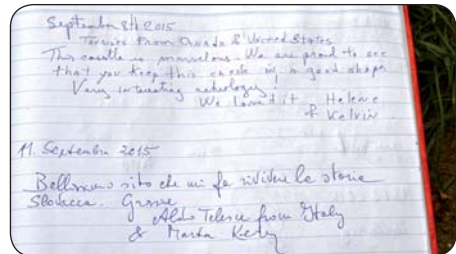 September 8th 2015
Tourists from Canada & United States
This castle is marvelous. We are proud to see
that you keep this castle in a good shape
Very interesting !
We loved it Helene
& Kelvin.
11. September 2015
Bellissimo sito che mi fa rivivere le storie
Grazie
Aldo Telesce from Italy
& Marta